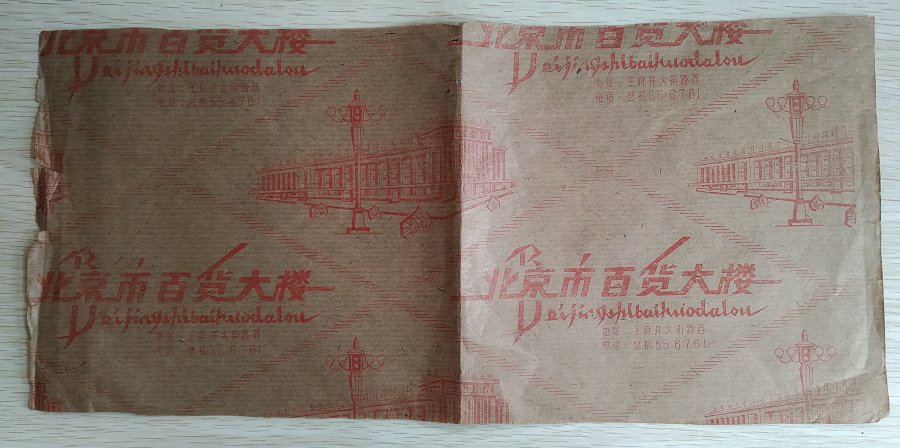 北京市百货大楼
北京市百货大楼
Beijingshibaihuodalou
Beijingshibaihuodalou
地址：王府井大街路西
地址：王府井大街路西
电话：总机55·6761
电话：总机55·6761
北京市百货大楼
北京市百货大楼
Beijingshibaihuodalou
Beijingshibaihuodalou
地址：王府井大街路西
地址：王府井大街路西
电话：总机55·6761
电话：总机55·6761